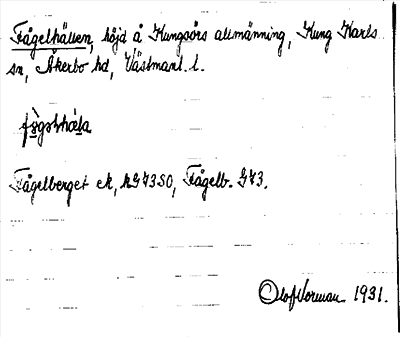 Fågelhällen, höjd å Kungsörs allmänning, Kung Karls
sn, Åkerbo hd, Västmanl. l.
Fågelberget ek, kG73SO, Fågelb. G73.
Olof Norman 1931.